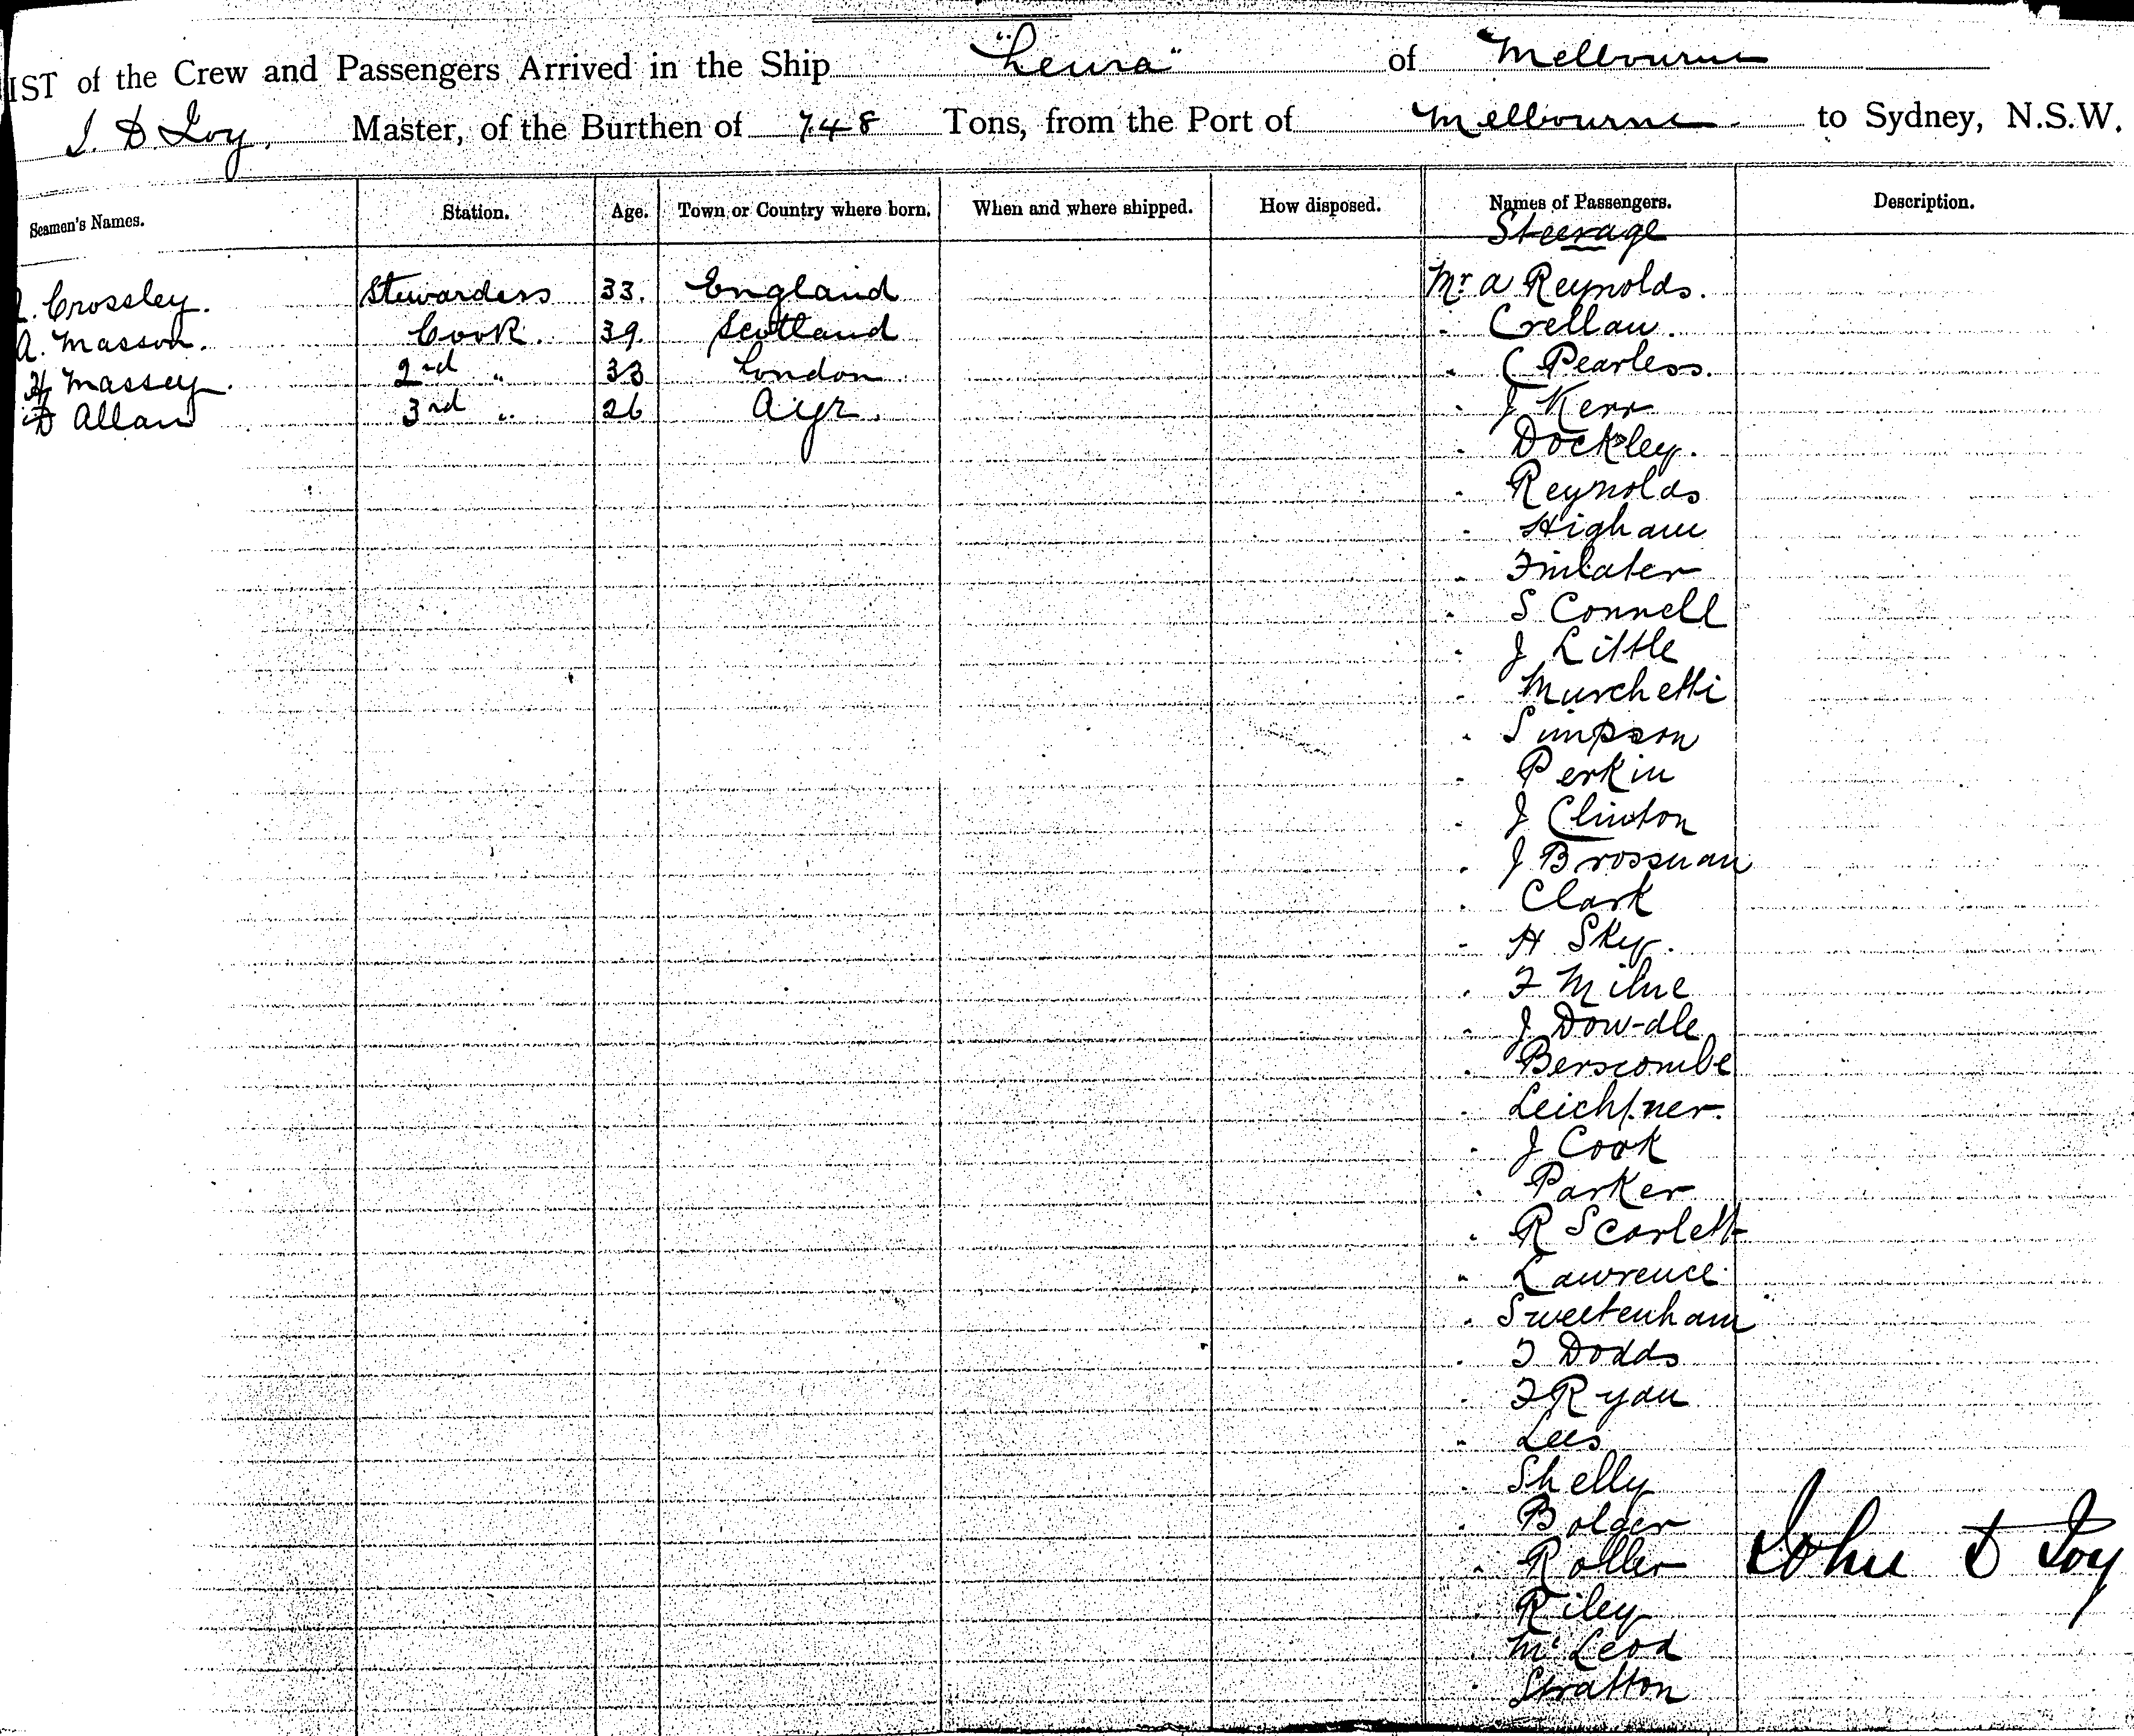 IST of the Crew and Passengers Arrived in the Ship "Leura" of Melbourne
J. D. Joy. Master, of the Burthen of 748 Tons, from the Port of Melbourne to Sydney, N.S.W.
Seamen's Names. Station. Age. Town or Country where born. When and where shipped. How disposed. Names of Passengers. Description.
Steerage
Crossley. Stewardess 33. England Mr A Reynolds.
A. Masson. Cook. 39 Scotland " Crellan.
H Massey. 2nd " 33 London " C Pearless.
D Allan 3rd " 26 Ayr. " J Kerr
" Dockley.
" Reynolds
" Higham
" Finlater
" S Connell
" J Little
" Murchetti
" Simpson
" Perkin
" J Clinton
" J Brosnan
" Clark
" H Sky.
" F Milne
" J Dowdle
" Berscombe
" Leichtner.
" J Cook
" Parker
" R Scarlett
" Lawrence
" Sweetenham
" T Dodds
" F Ryan
" Lees
" Shelly
" Bolger
" Roller John D Joy
" Riley
" McLeod
" Stratton